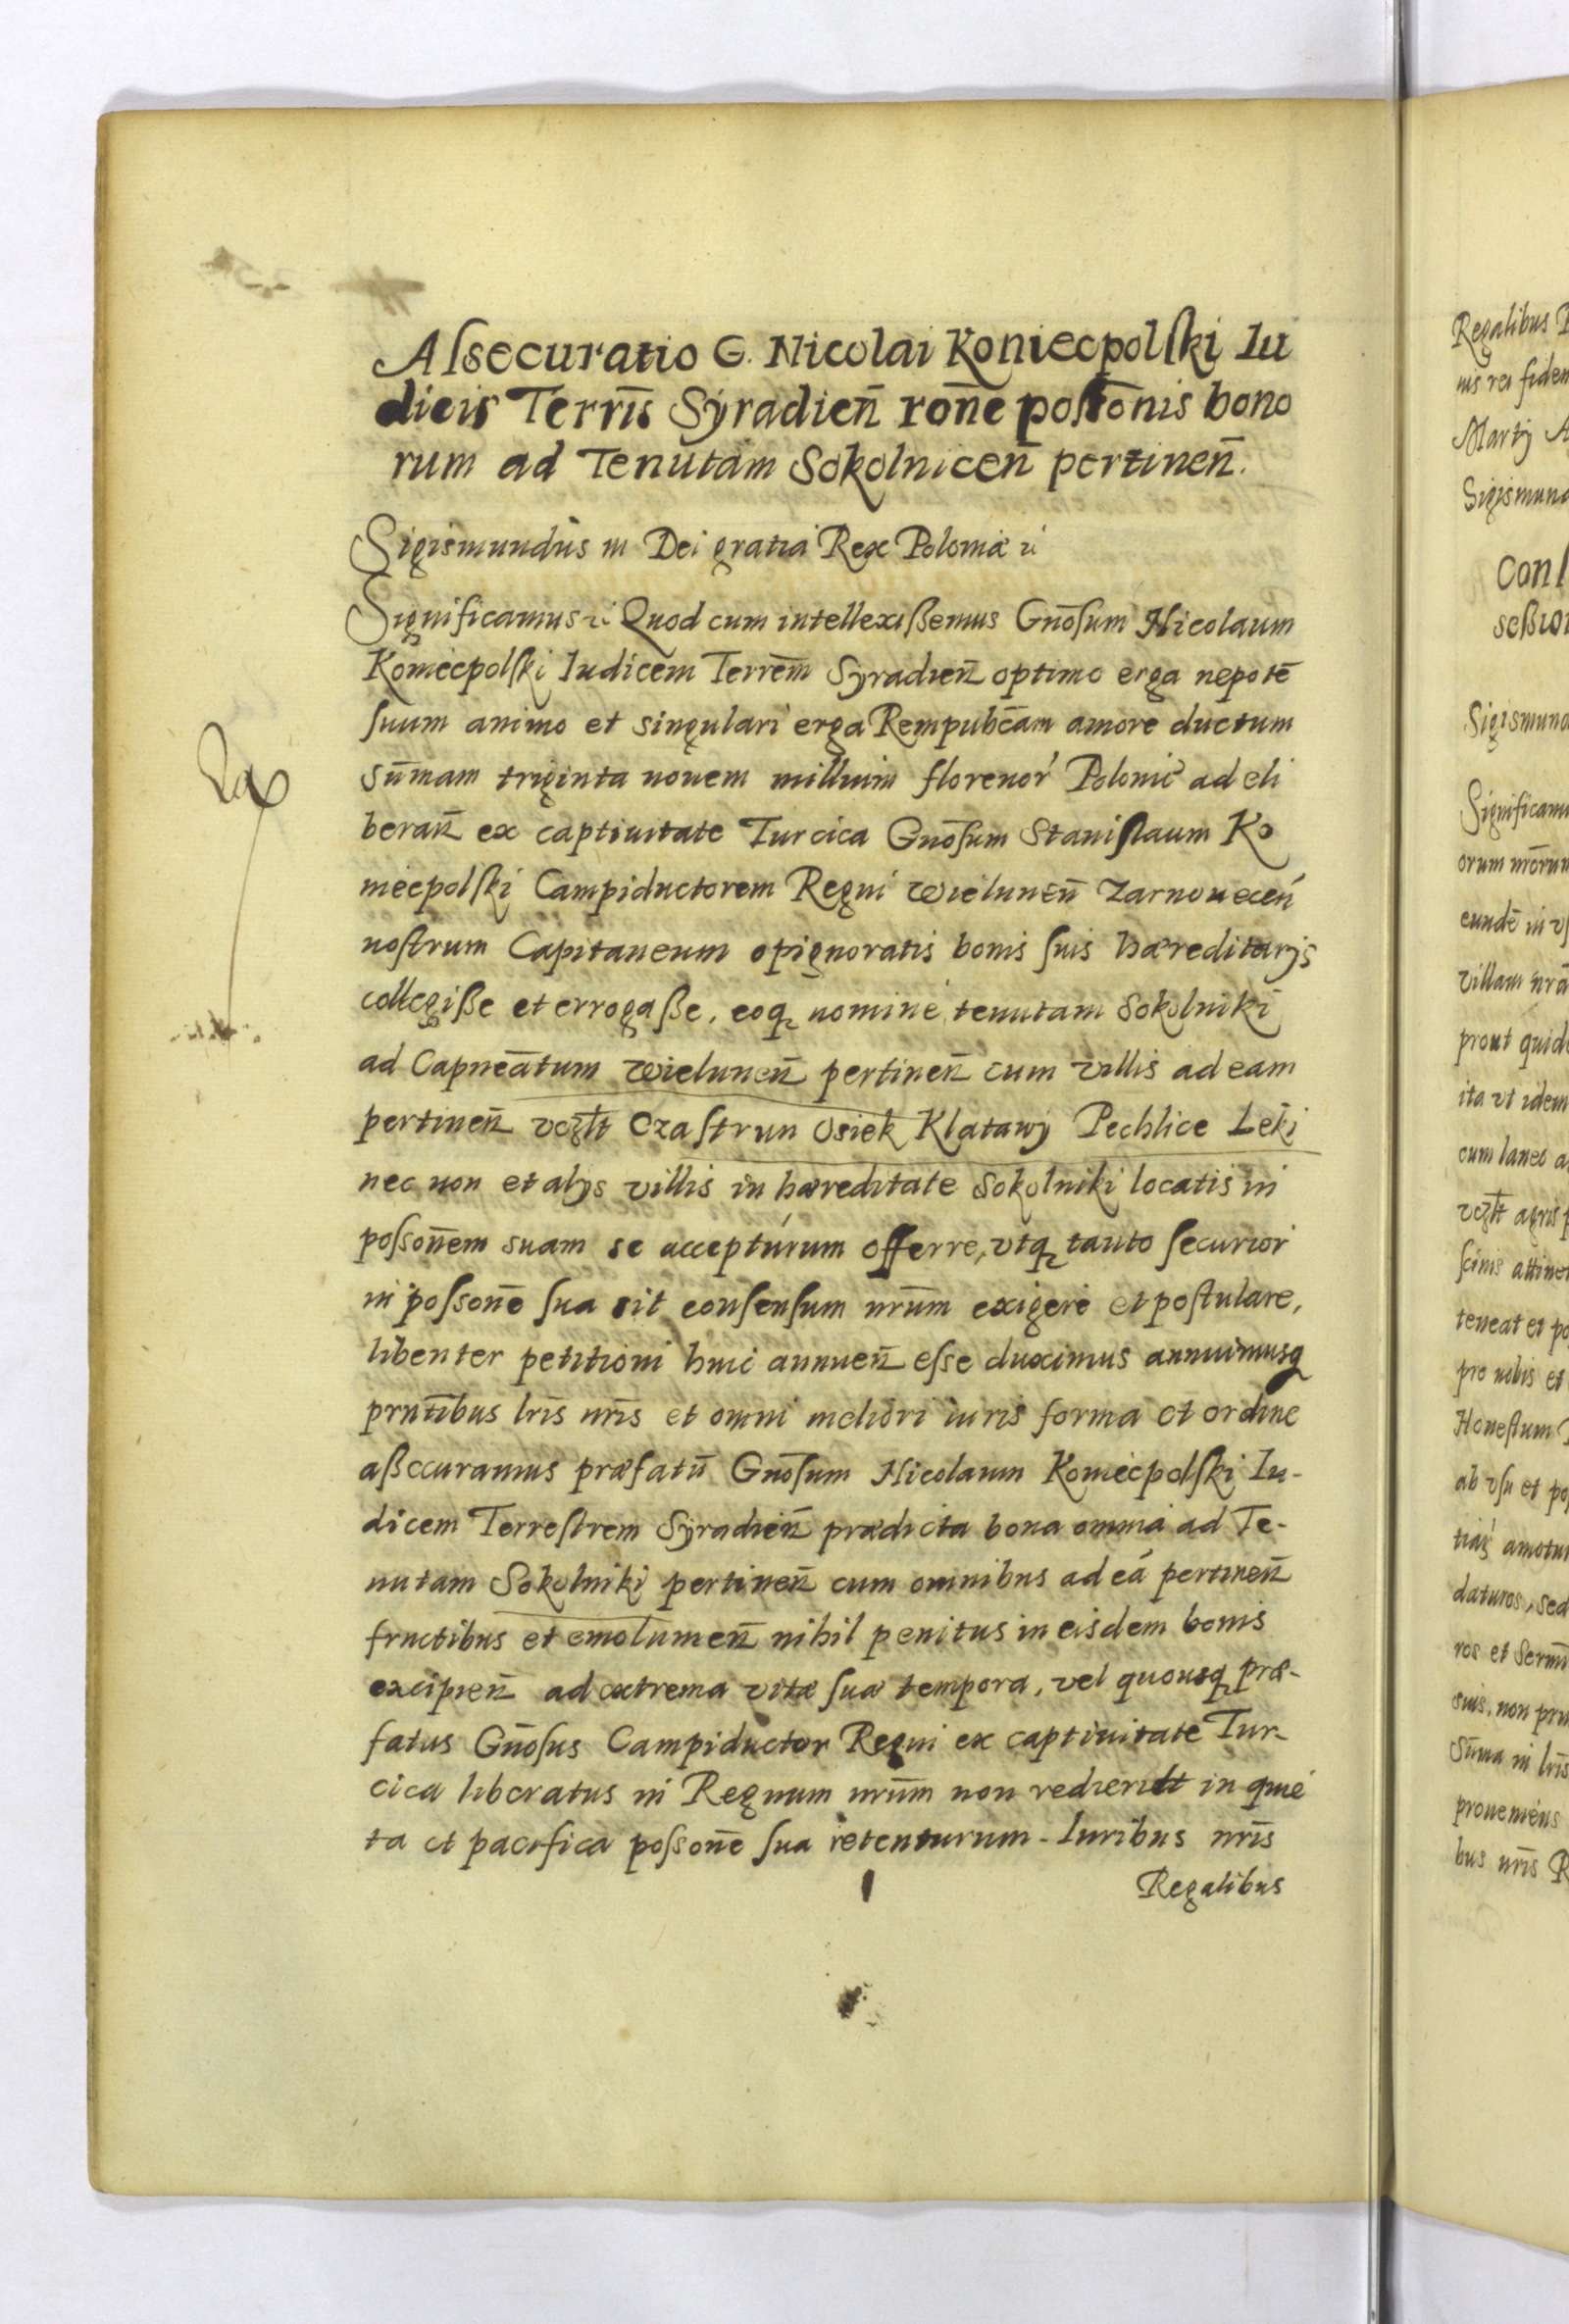 Assecuratio G. Nicolai Koniecpolski Iu
dicis Terris̄ Syradien̄ ron̄e possōnis bono
rum ad Tenutam Sokolnicen̄ pertinen̄.
Sigismundus III Dei gratia Rex Poloniæ
Significamus Quod cum intellexißemus Gnōsum Nicolaum
Koniecpolski Iudicem Terrēm Syradien̄ optimo erga nepotē
suum animo et singulari erga Rempubc̄am amore ductum
sūmam triginta nouem millium florenor Polonic ad eli
beran̄ ex captiuitate Turcica Gnōsum Stanislaum Ko
niecpolski Campiductorem Regni Wielunen̄ Zarnouecen
nostrum Capitaneum opignoratis bonis suis hæreditarijs
collegiße et errogaße, eoq nomine tenutam Sokolniki
ad Capneātum Wielunen̄ pertinen̄ cum villis ad eam
pertinen̄ vczlt̄ Czastrun Osiek Klatawy Pechlice Łeki
nec non et alys villis in hæreditate Sokolniki locatis in
posson̄em suam se accepturum offerre, vtq tanto securior
in possonē sua sit consensum nrūm exigere et postulare,
libenter petitioni huic annuen̄ esse duximus annuimusq
prntībus lrīs nrīs et omni meliori iuris forma et ordine
aßecuramus præfatū Gnōsum Nicolaum Koniecpolski Iu-
dicem Terrestrem Syradien̄ prædicta bona omnia ad Te-
nutam Sokolniki pertinen̄ cum omnibus ad eā pertinen̄
fructibus et emolumen̄ nihil penitus in eisdem bonis
excipien̄ ad extrema vitæ suæ tempora, vel quousq præ-
fatus Gnōsus Campiductor Regni ex captiuitate Tur-
cica liberatus in Regnum nrūm non redierit in quie
ta et pacifica possonē sua retenturum. Iuribus nrīs
Regalibus
Regalibus
Sigismund
Significam